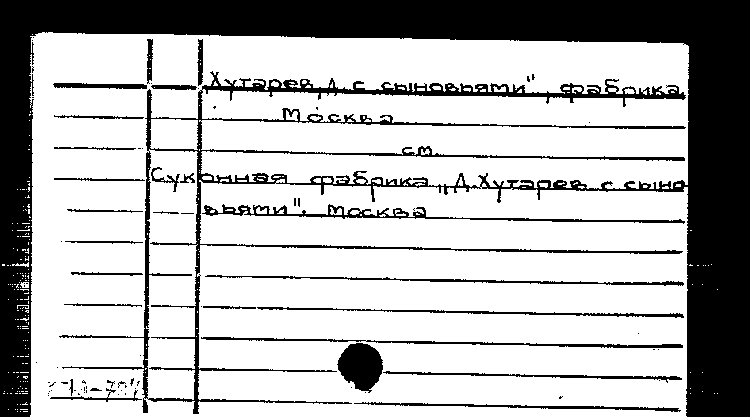 Хутарев, Д. с сыновьями", фабрика
Москва
см.
Суконная фабрика „Д. Хутарев с сыно
вьями". Москва